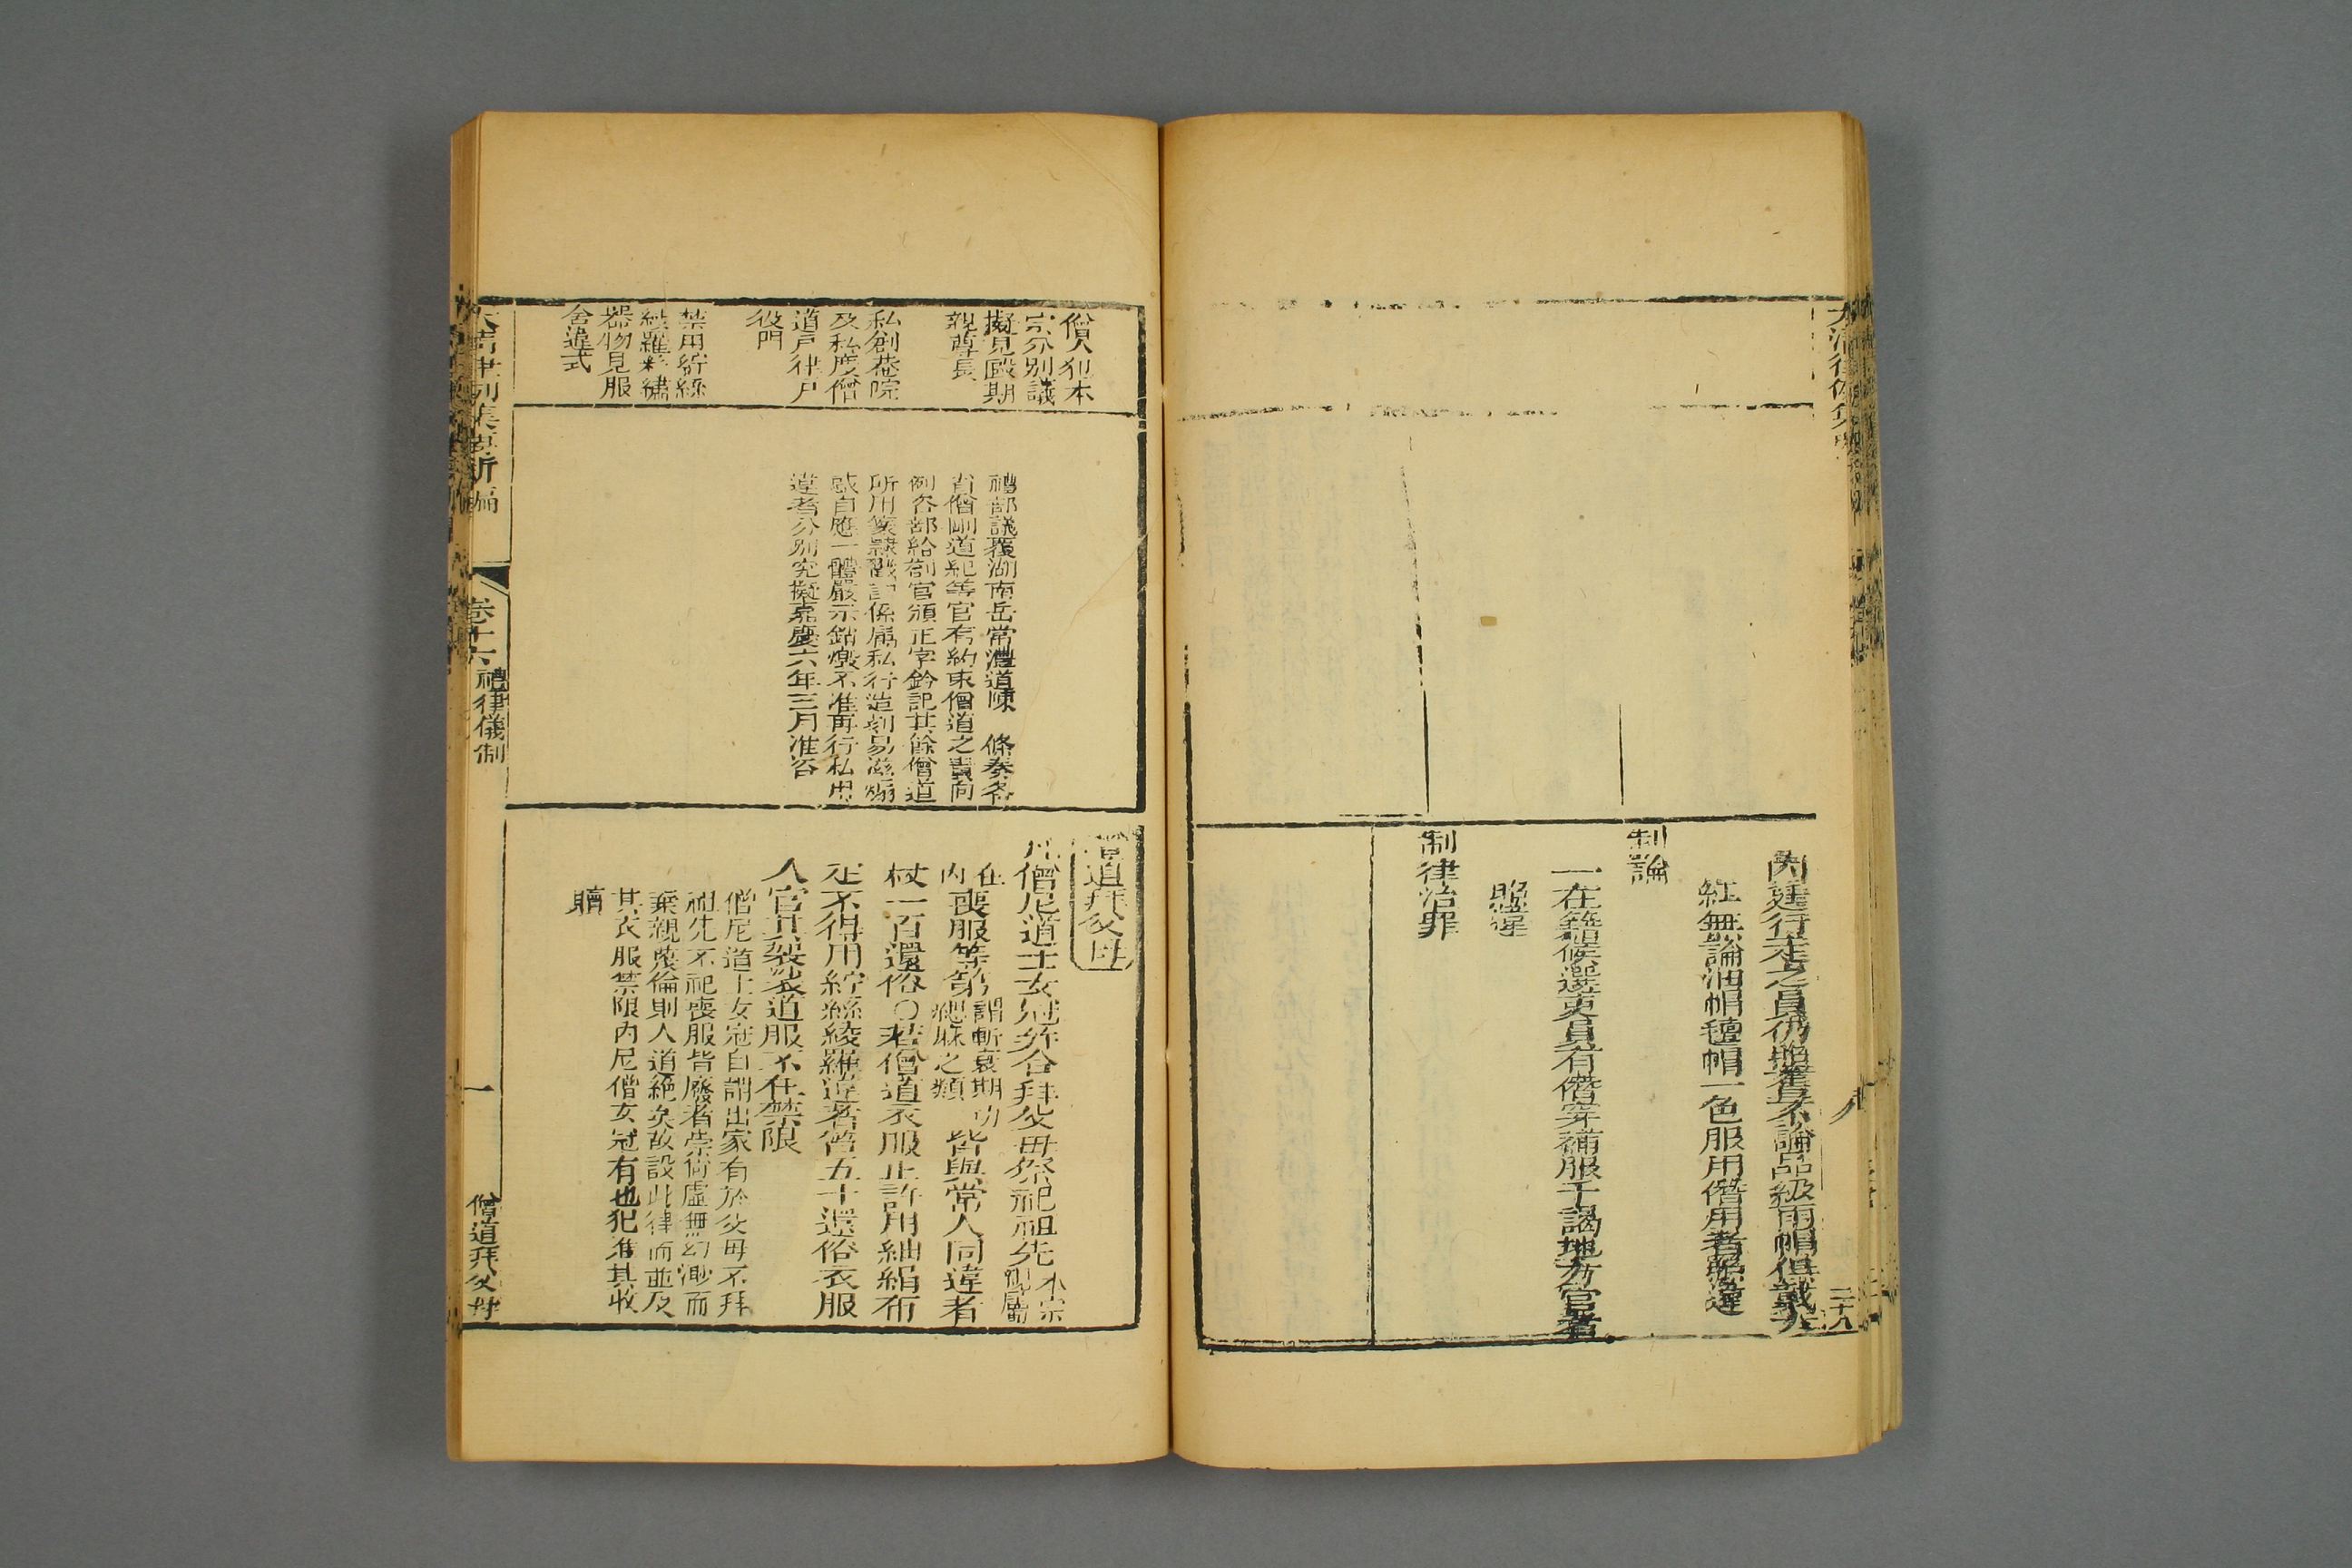 內廷行走之員仍照舊不論品級雨帽俱戴大
紅無論油帽氊帽一色服用僭用者照違
制論
一在籍候選吏員有僭穿補服干謁地方官者
照違
制律治罪
二十八
僧人犯本
宗分別議
擬見毆期
親尊長
私創菴院
及私度僧
道戶律戶
役門
禁用紵絲
綾羅彩繡
器物見服
舍違式
禮部議覆湖南岳常澧道陳 條奏各
省僧剛道紀等官有約束僧道之責向
例各部給劄官頒正字鈐記其餘僧道
所用篆隸戳記係屬私行造刻易滋煽
惑自應一體嚴示銷燬不准再行私用
違者分別究擬嘉慶六年三月准咨
僧道拜父母
凡僧尼道士女冠並令拜父母祭祀祖先本宗親屬
在內喪服等第謂斬衰期功緦麻之類皆與常人同違者
杖一百還俗○若僧道衣服止許用紬絹布
疋不得用紵絲綾羅違者笞五十還俗衣服
入官其袈裟道服不在禁限
僧尼道士女冠自謂出家有於父母不拜
祖先不祀喪服皆廢者崇尚虛無幻渺而
棄親蔑倫則人道絕矣故設此律而並及
其衣服禁限內尼僧女冠有也犯准其收
贖
大清律例集要新編 卷十六 禮律儀制 一 僧道拜父母